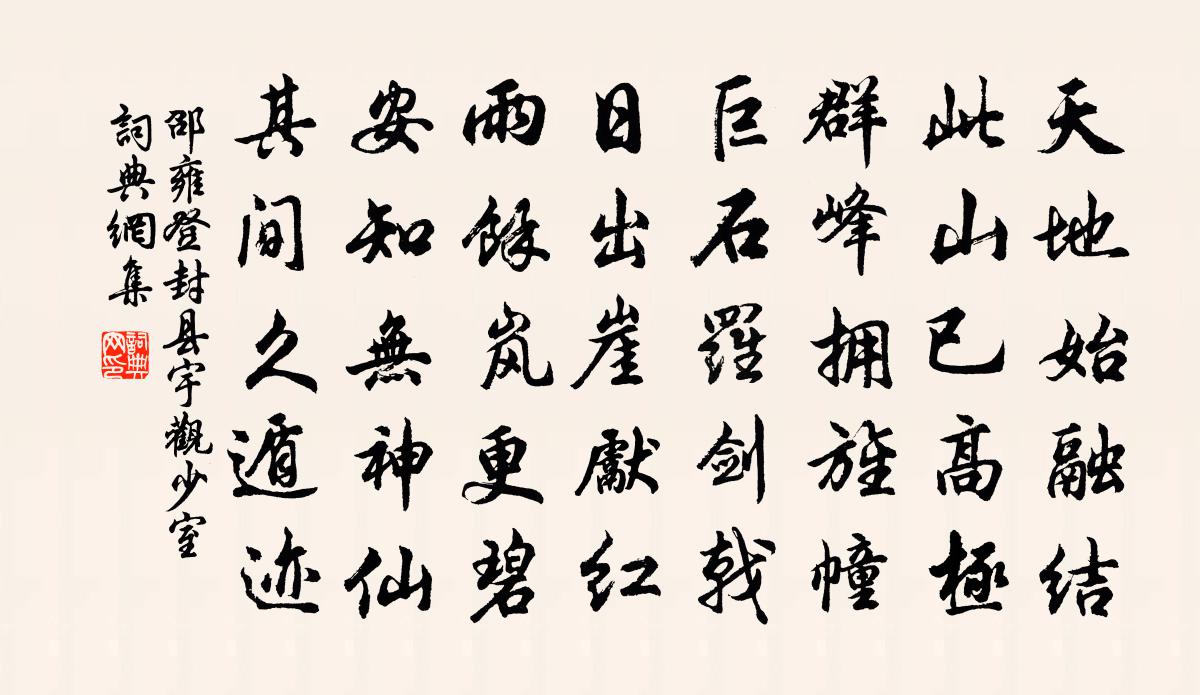 天地始融结
此山已高極
群峰拥旌幢
巨石羅剑戟
日出崖獻红
雨餘岚更碧
安知無神仙
其间久遁迹
邵雍登封县宇觀少室
詞典網集